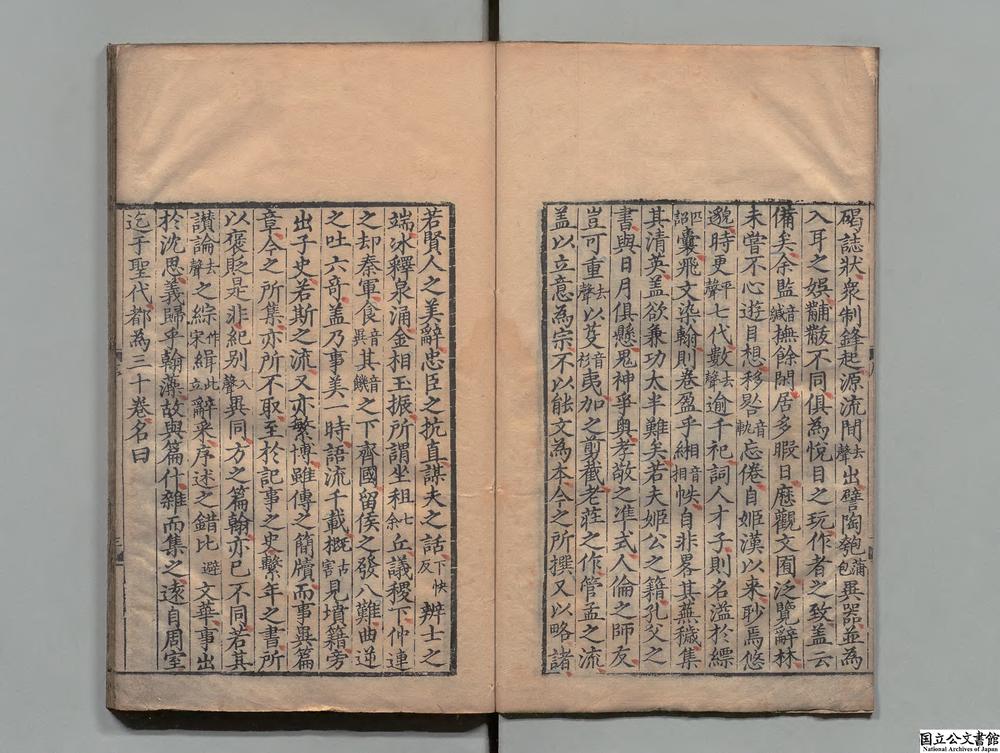 碣誌狀衆制鋒起源流間去聲出譬陶匏蒲包異器並為
入耳之娛黼黻不同俱為悅目之玩作者之致盖云
備矣余監音緘撫餘閑居多暇日歷觀文囿泛覽辭林
未嘗不心遊目想移晷音軌忘倦自姬漢以來眇焉悠
邈時更平聲七代數去聲逾千祀詞人才子則名溢於縹
匹詔囊飛文染翰則卷盈乎緗音相帙自非畧其蕪穢集
其清英盖欲兼功太半難矣若夫姬公之籍孔父之
書與日月俱懸鬼神爭奥孝敬之准式人倫之師友
豈可重去聲以芟音衫夷加之剪截老莊之作管孟之流
盖以立意為宗不以能文為本今之所撰又以略諸
若賢人之美辭忠臣之抗直謀夫之話下快反辨士之
端冰釋泉涌金相玉振所謂坐狙七余丘議稷下仲連
之却秦軍食音異其音饑之下齊國留侯之發八難曲逆
之吐六奇盖乃事美一時語流千載概古害見墳籍旁
出子史若斯之流又亦繁博雖傳之簡牘而事異篇
章今之所集亦所不取至於記事之史繫年之書所
以褒貶是非紀別入聲異同方之篇翰亦已不同若其
讃論去聲之綜作宋緝此立辭采序述之錯比避文華事出
於沈思義歸乎翰藻故與篇什雜而集之遠自周室
迄于聖代都為三十卷名曰
国立公文書館
National Archives of Japan